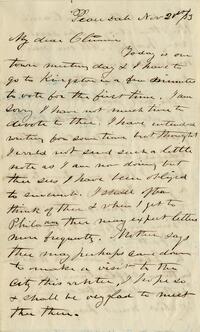 Nov 2nd
My dear
Today is our
town meeting day & I have to
go to Kingston in a few minutes
to vote for the first time. I am
sorry I have not much time to
devote to thee. I have intended
writing for some time but thought
I would not send such a little
note as I am now doing but
thee sees I have been obliged
to succumb. I often
think of thee & when I get to
Phila thee may expect letters
more frequently. Mother says
thee may perhaps come down
to make a visit to the
City this winter, I hope so
& shall be very glad to meet
thee there.